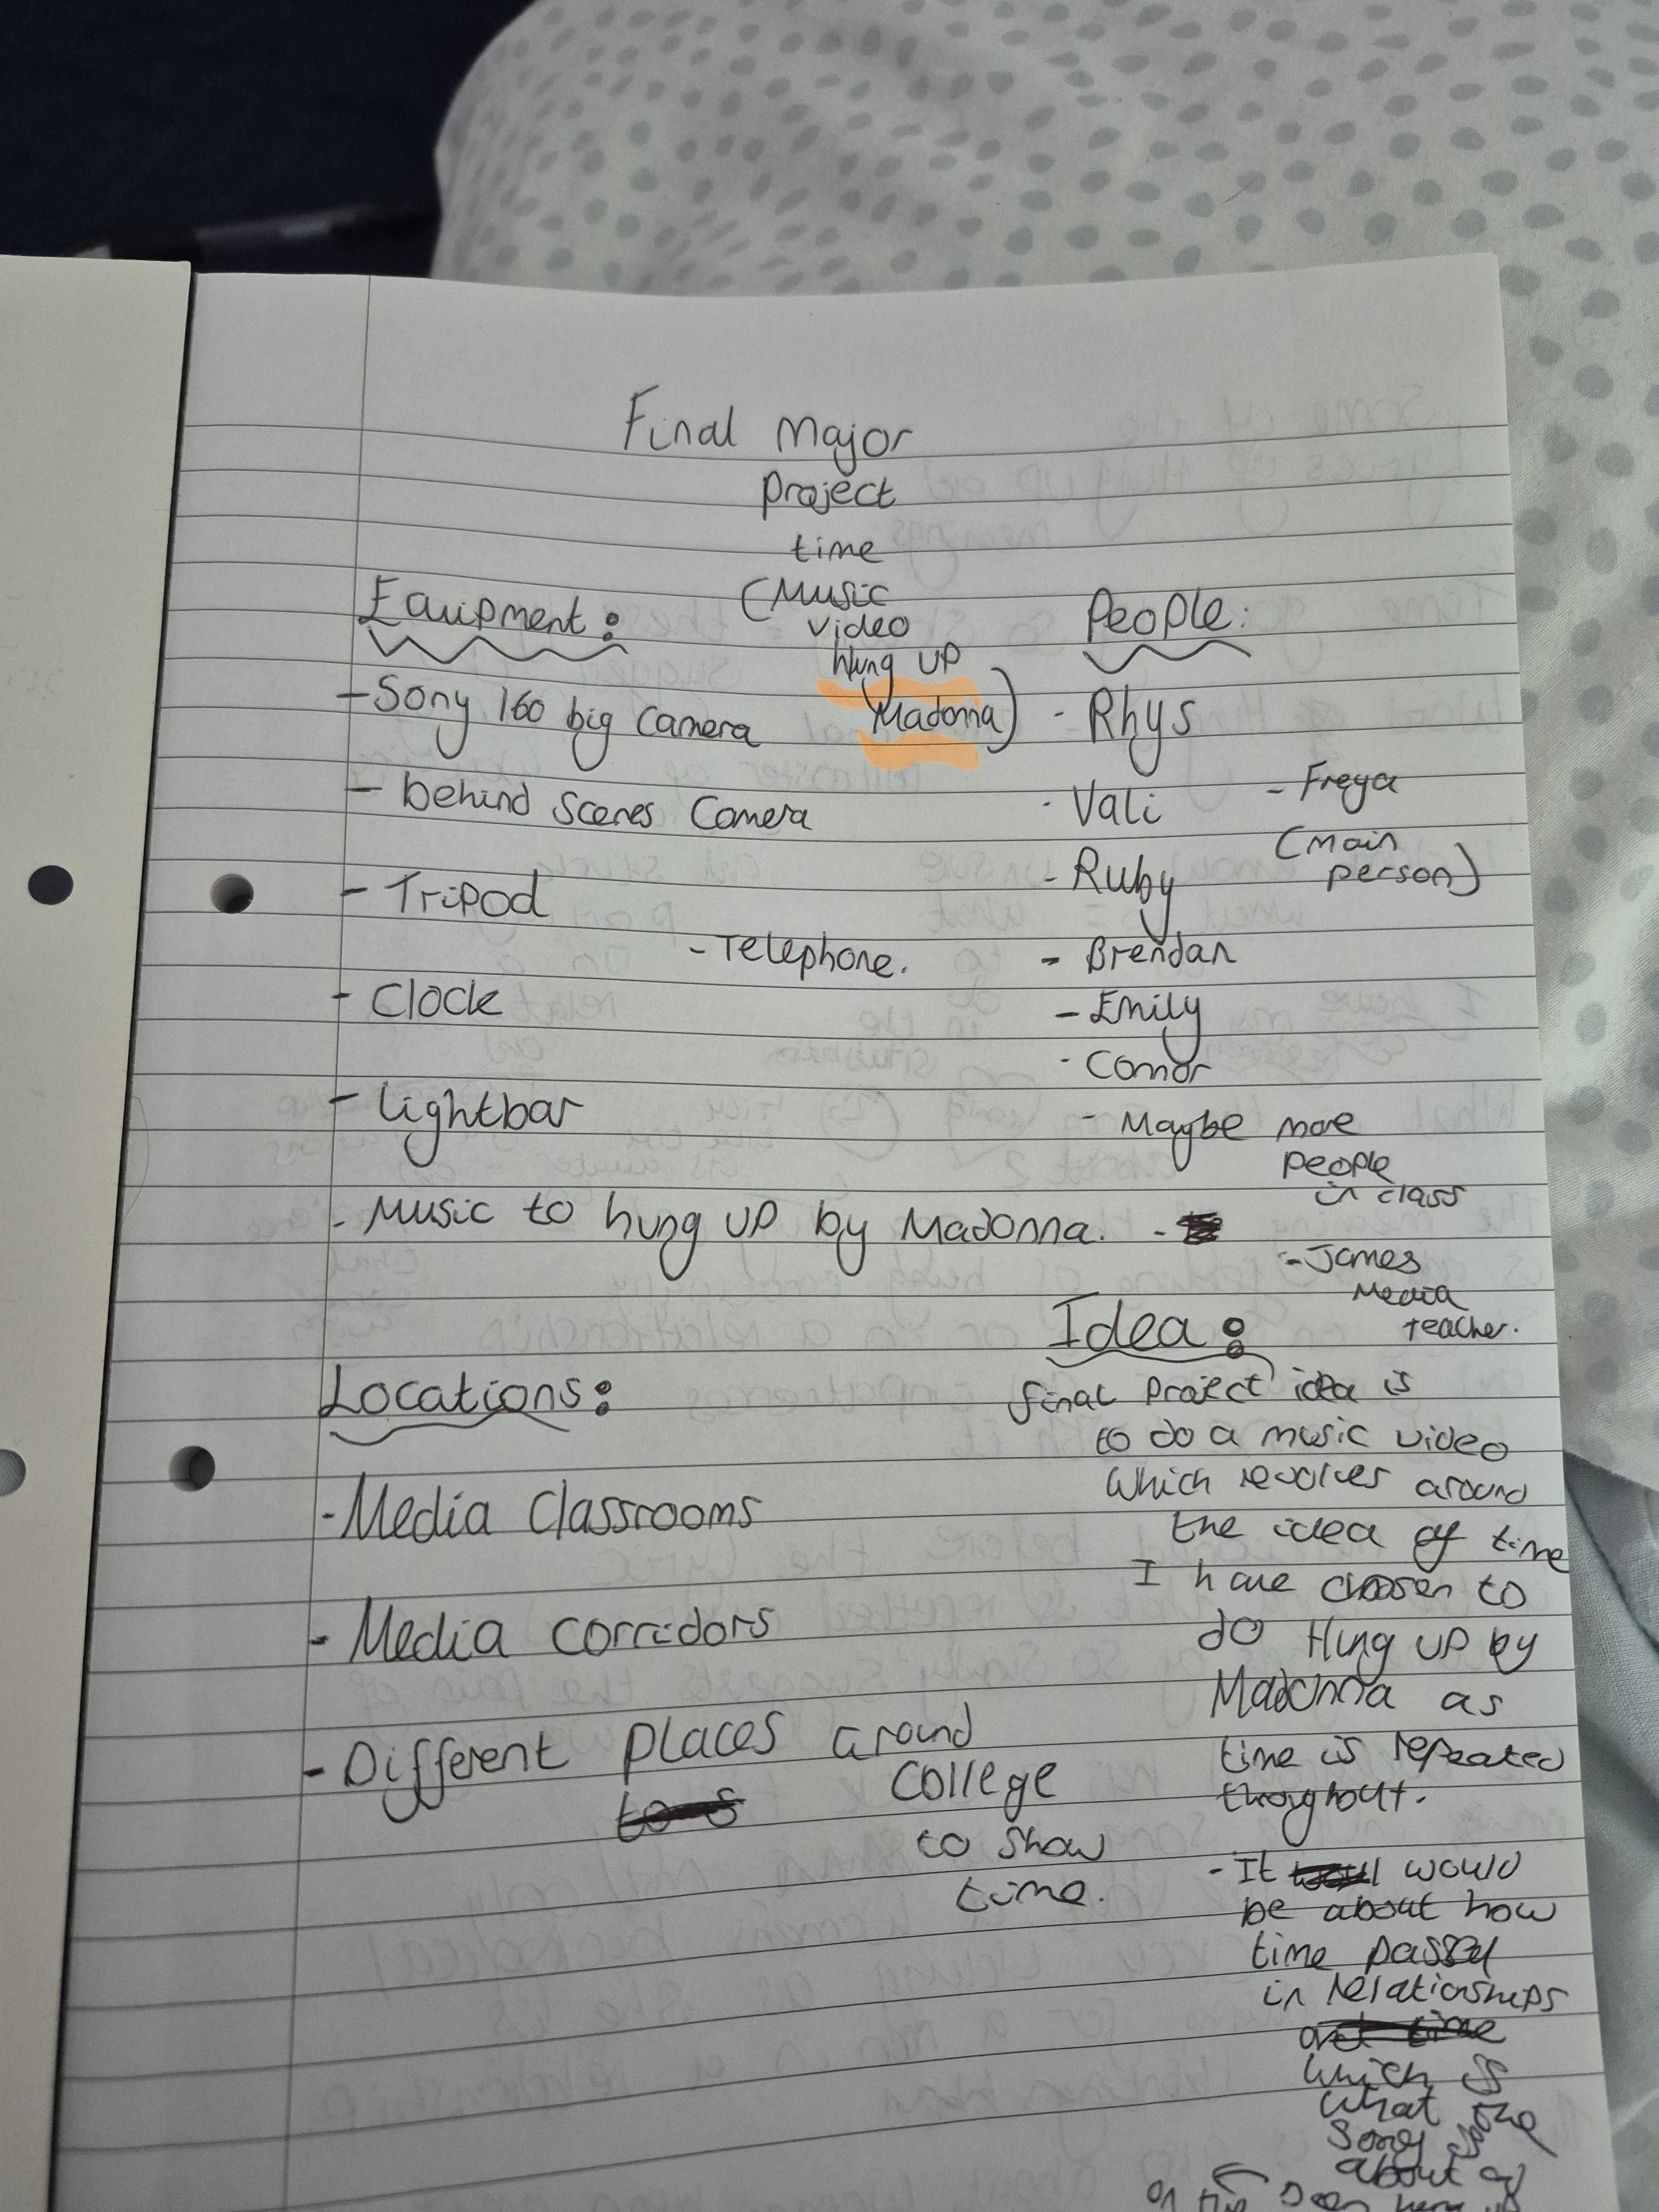 Final Major
Project
time
(Music
video
hung up
Madonna)
Equipment:
- Sony 160 big camera
- behind scenes camera
- Tripod
- Telephone.
- Clock
- lightbar
- Music to hung up by Madonna. -
People:
- Rhys
- Vali
- Freya
(main
person)
- Ruby
- Brendan
- Emily
- Connor
- Maybe more
people
in class
- James
Media
teacher.
Locations:
- Media Classrooms
- Media corridors
- Different places around
college
to show
time.
Idea:
final project idea is
to do a music video
which revolves around
the idea of time
I have chosen to
do Hung up by
Madonna as
time is repeated
throyghout.
- It would
be about how
time passed
in relationships
which is
what the
song
about